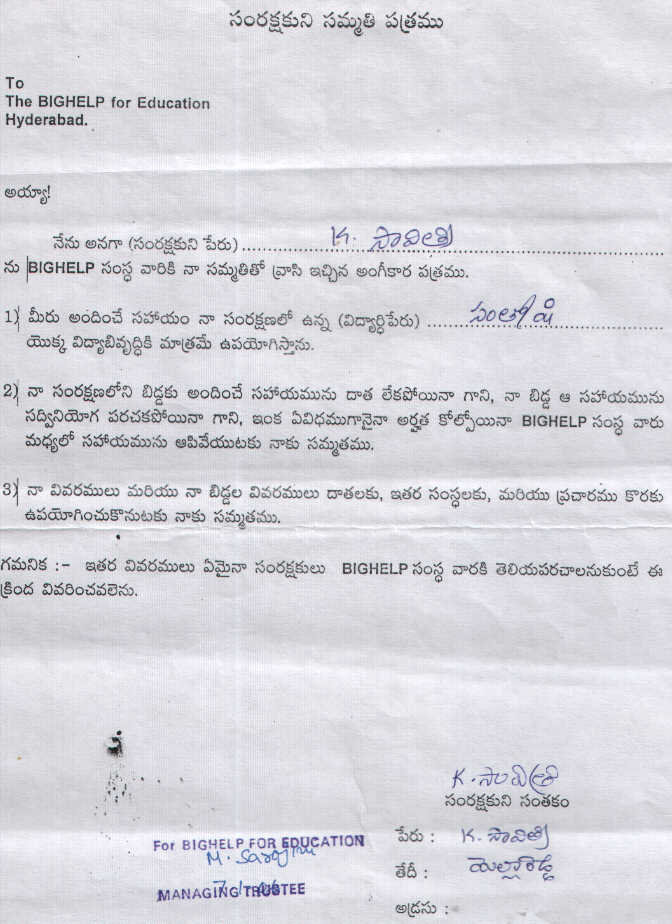 సంరక్షకుని సమ్మతి పత్రము
To
The BIGHELP for Education
Hyderabad.
అయ్యా!
నేను అనగా (సంరక్షకుని పేరు) .......... K. సావిత్రి
ను BIGHELP సంస్థ వారికి నా సమ్మతితో వ్రాసి ఇచ్చిన అంగీకార పత్రము.
1) మీరు అందించే సహాయం నా సంరక్షణలో ఉన్న (విద్యార్థిపేరు) .......... సంతోషి
యొక్క విద్యాబివృద్ధికి మాత్రమే ఉపయోగిస్తాను.
2) నా సంరక్షణలోని బిడ్డకు అందించే సహాయమును దాత లేకపోయినా గాని, నా బిడ్డ ఆ సహాయమును
సద్వినియోగ పరచకపోయినా గాని, ఇంక ఏవిధముగానైనా అర్హత కోల్పోయినా BIGHELP సంస్థ వారు
మధ్యలో సహాయమును ఆపివేయుటకు నాకు సమ్మతము.
3) నా వివరములు మరియు నా బిడ్డల వివరములు దాతలకు, ఇతర సంస్థలకు, మరియు ప్రచారము కొరకు
ఉపయోగించుకొనుటకు నాకు సమ్మతము.
గమనిక :- ఇతర వివరములు ఏమైనా సంరక్షకులు BIGHELP సంస్థ వారకి తెలియపరచాలనుకుంటే ఈ
క్రింద వివరించవలెను.
K. సావిత్రి
సంరక్షకుని సంతకం
For BIGHELP FOR EDUCATION
MANAGING TRUSTEE
పేరు : K. సావిత్రి
తేదీ :
అడ్రసు :